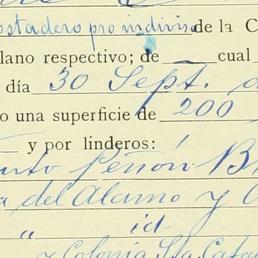 ostadero pro indiviso de la C
lano respectivo; de ___ cual
día 30 Sept. d
o una superficie de 200
y por linderos:
Peñón B
a del Alamo y
" id.
y Colonia Sta. Cata